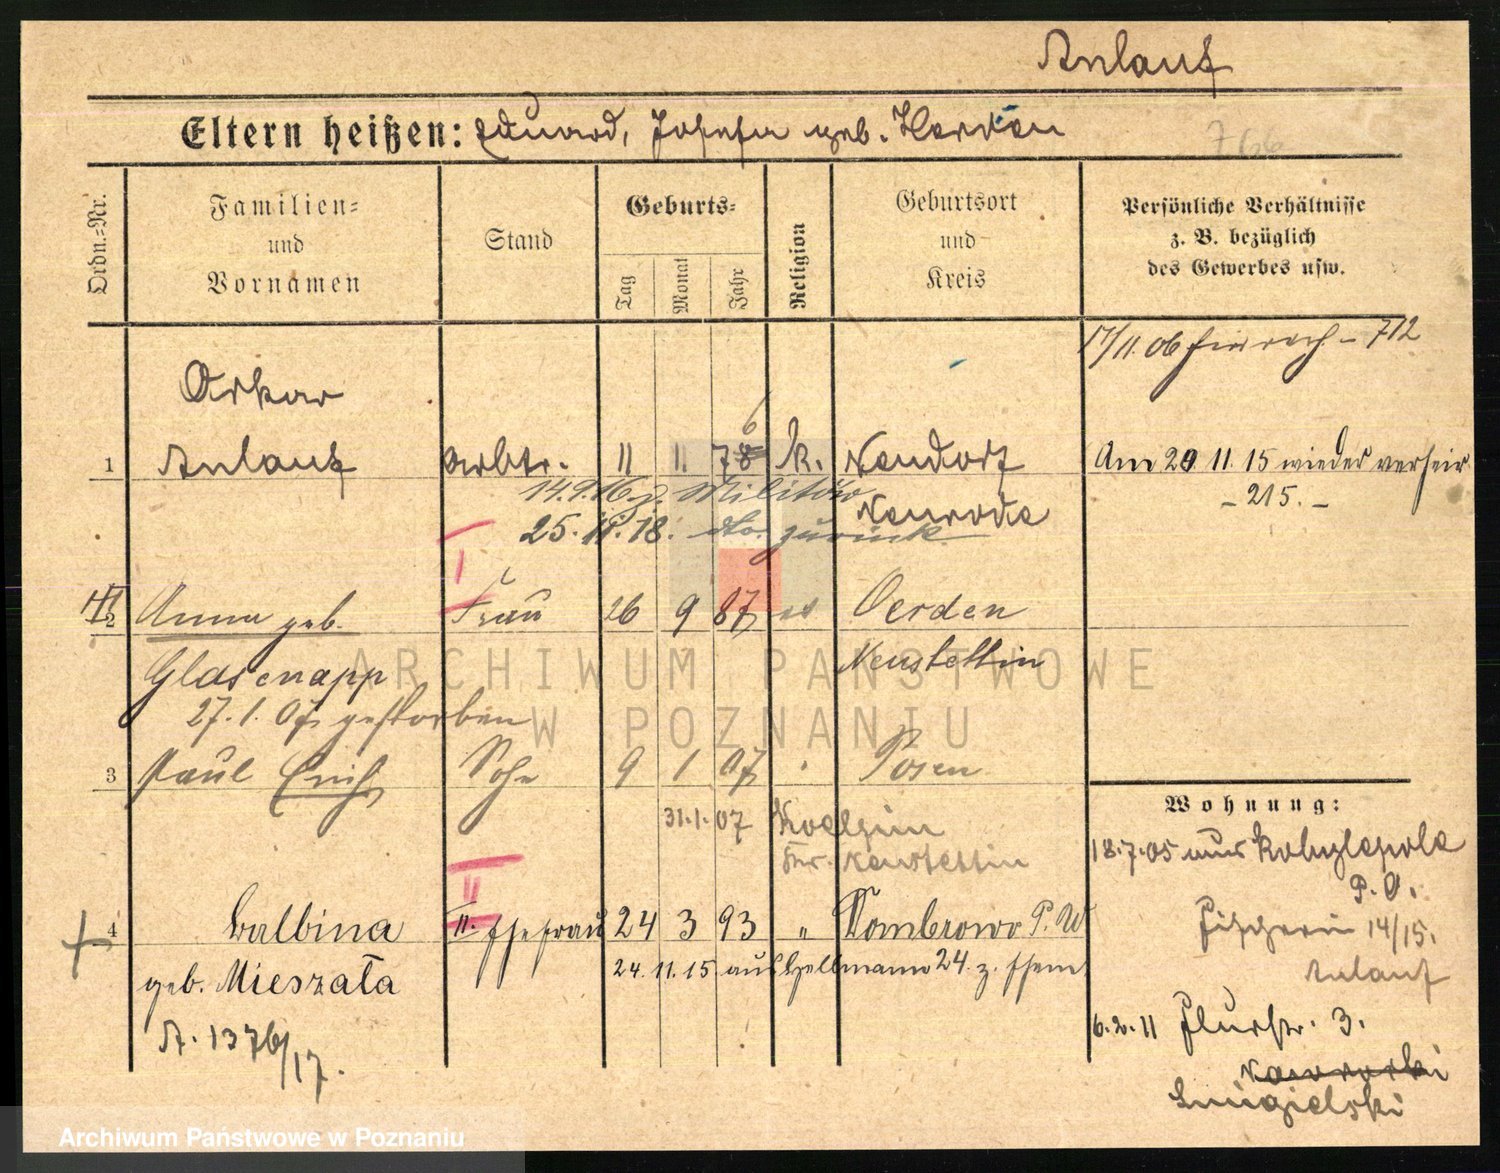 Anlauf
Eltern heißen: Eduard, Josefa geb.
766
Ordn.-Nr.
Familien-
und
Vornamen
Stand
Geburts-
Tag
Monat
Jahr
Religion
Geburtsort
und
Kreis
Persönliche Verhältnisse
z. B. bezüglich
des Gewerbes usw.
17/11. 06 - 712
Oskar
6
1 Anlauf Arbtr. 11 1. 78 k. Neudorf
Am 20 11. 15 wieder
- 215. -
14.9.16 z. Militär
Neurode
25. 11. 18. dto. zurück.
I
2 Anna geb. Frau 26 9 87 Oerden
Glasenapp Neustettin
27. 1. 07 gestorben
3 Paul Erich Sohn 9 1 07 Posen
31.1.07
Neustettin
Wohnung:
18.7.05 aus Kobylepole
P. O.
14/15.
Anlauf
II
4 Balbina II. Ehefrau 24 3 93 " Dombrowo P. W
24. 11. 15 aus 24. z. Ehem
geb. Mieszała
A. 1376/17.
6.2.11 Flurstr. 3.
Nawrocki
Smigielski
ARCHIWUM PAŃSTWOWE
W POZNANIU
Archiwum Państwowe w Poznaniu